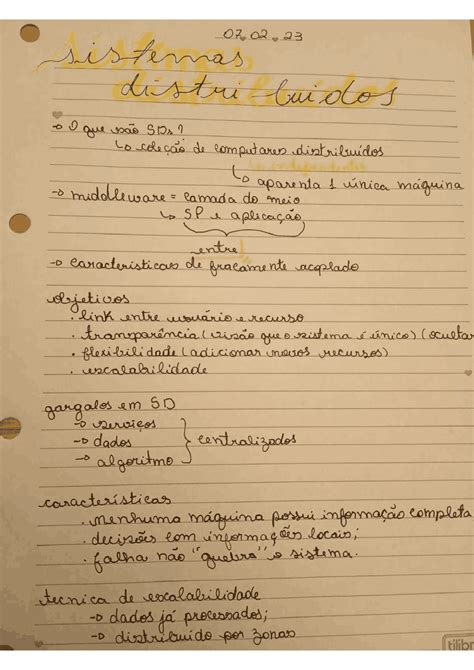 07.02.23
sistemas
distribuídos
→ O que são SDs?
↳ coleção de computares distribuídos
↳ independentes
aparenta 1 única máquina
→ middleware = camada do meio
↳ SP e aplicação
entre
→ características de fracamente acoplado
objetivos
. link entre usuário e recurso
. transparência (visão que o sistema é único) (ocultar
. flexibilidade (adicionar novos recursos)
. escalabilidade
gargalos em SD
→ serviços
→ dados } centralizados
→ algoritmo
características
. nenhuma máquina possui informação completa
. decisões com informações locais;
. falha não "quebra" o sistema.
tecnica de escalabilidade
→ dados já processados;
→ distribuido por zonas
tilibra